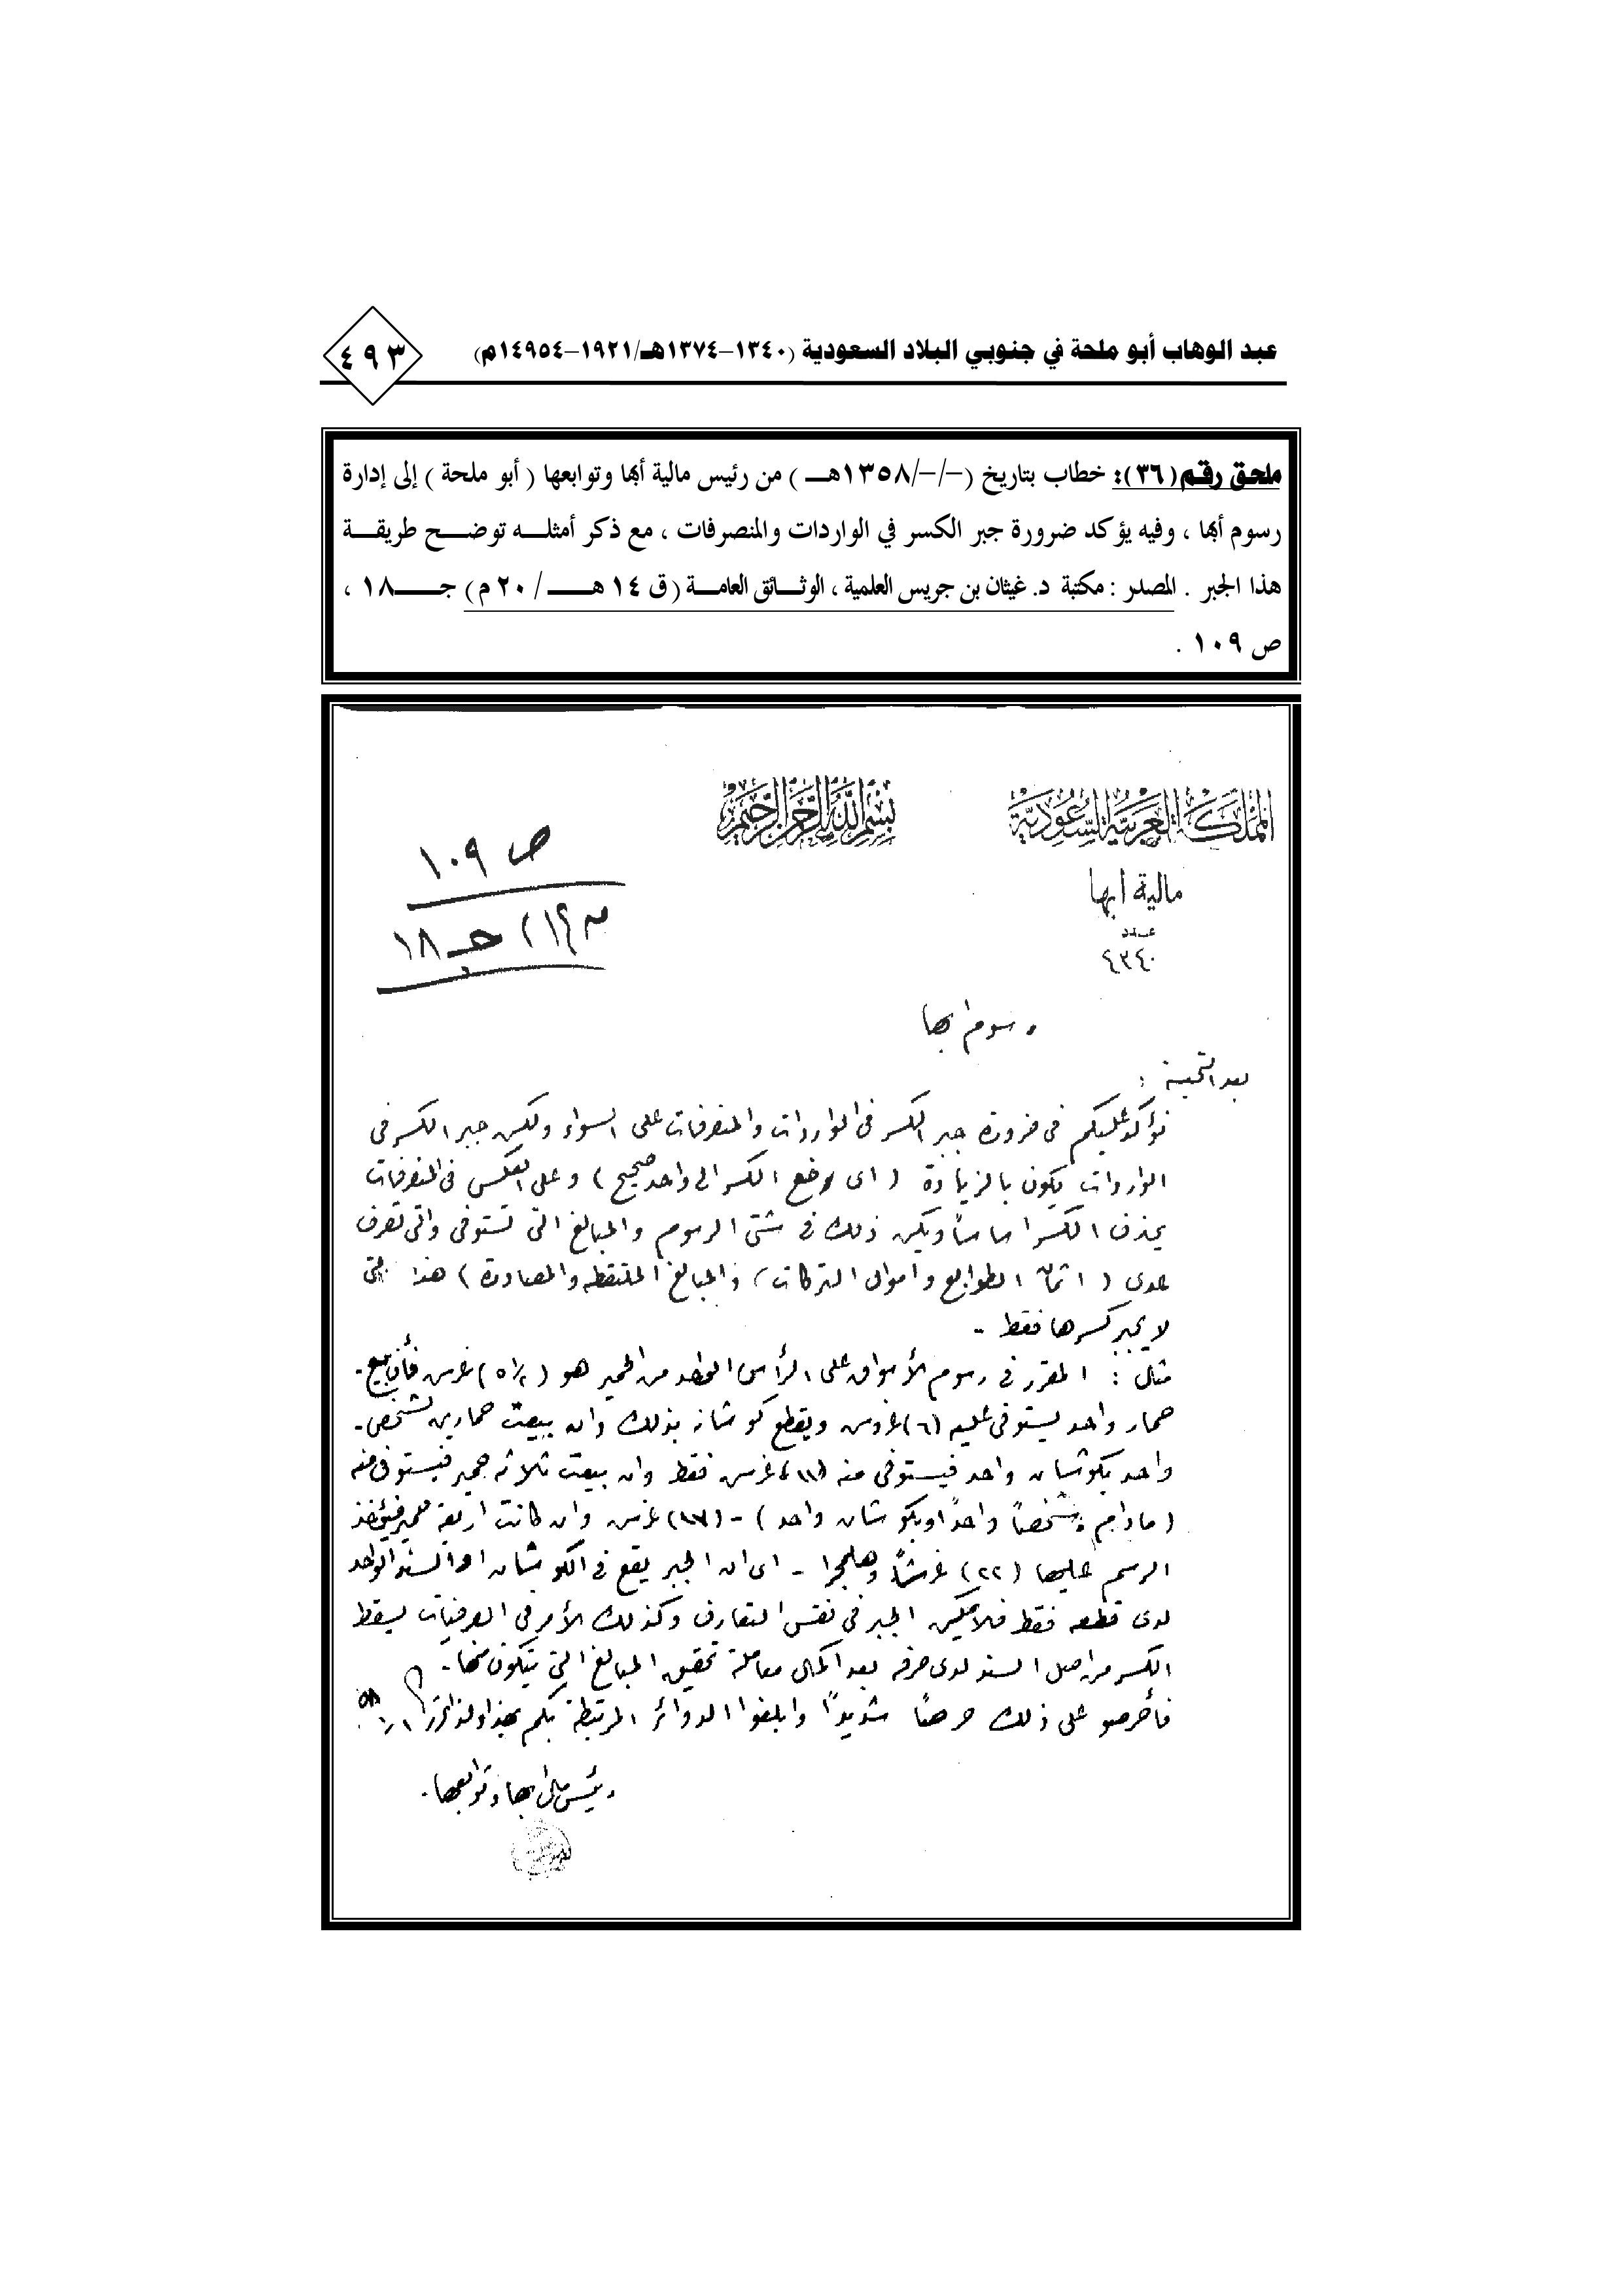 عبد الوهاب أبو ملحة في جنوبي البلاد السعودية (١٣٤٠-١٣٧٤هـ/١٩٢١-١٤٩٥٤م)
٤٩٣
ملحق رقم (٣٦): خطاب بتاريخ (-/-/١٣٥٨هـ) من رئيس مالية أبها وتوابعها (أبو ملحة) إلى إدارة
رسوم أبها ، وفيه يؤكد ضرورة جبر الكسر في الواردات والمنصرفات ، مع ذكر أمثله توضح طريقة
هذا الجبر . المصدر : مكتبة د. غيثان بن جريس العلمية ، الوثائق العامة (ق ١٤ هـ / ٢٠ م) جـ ١٨ ،
ص ١٠٩ .
المملكة العربية السعودية
بسم الله الرحمن الرحيم
ص ١٠٩
جـ ١٨
مالية ابها
عدد
٤٣٤٠
رسوم ابها
بعد التحية :
نؤكد عليكم في ضرورة جبر الكسر في الواردات والمنصرفات على السواء ولكن جبر الكسر في
الواردات يكون بالزيادة ( اى رفع الكسر الى واحد صحيح ) وعلى العكس في المنصرفات
يحذف الكسر اساساً ويكن ذلك في شتى الرسوم والمبالغ التى تستوفى والتى تصرف
عدى ( اثمان الطوابع واموال التركات ) والمبالغ الملتقطه والمصادرة ) هذا التى
لا يجبر كسرها فقط -
مثال : المقرر في رسوم الأسواق على الرأس الواحد من الحمير هو ( ٥ ١/٢ ) غرس فأن بيع
حمار واحد يستوفى عليه (٦) غروس ويقطع كوشانه بذلك وان بيعت حمارين لشخص
واحد بكوشان واحد فيستوفى منه (١١) غرس فقط وان بيعت ثلاثه حمير فيستوفى منه
( مادام شخصاً واحداً وبكوشان واحد ) - (١٧) غرس وان كانت اربعة حمير فيؤخذ
الرسم عليها (٢٢) غرشاً وهلمجرا - اى ان الجبر يقع في الكوشان او السند الواحد
لدى قطعه فقط فلا يمكن الجبر في نفس التعارف وكذلك الأمر في الصرفيات يسقط
الكسر من اصل السند لدى صرفه بعد اكمال معاملة تحقيق المبالغ التي يتكون منها -
فأحرصو على ذلك حرصاً شديداً وابلغوا الدوائر المرتبطة بكم بهذا ولذا تحرر
رئيس مالية ابها وتوابعها .